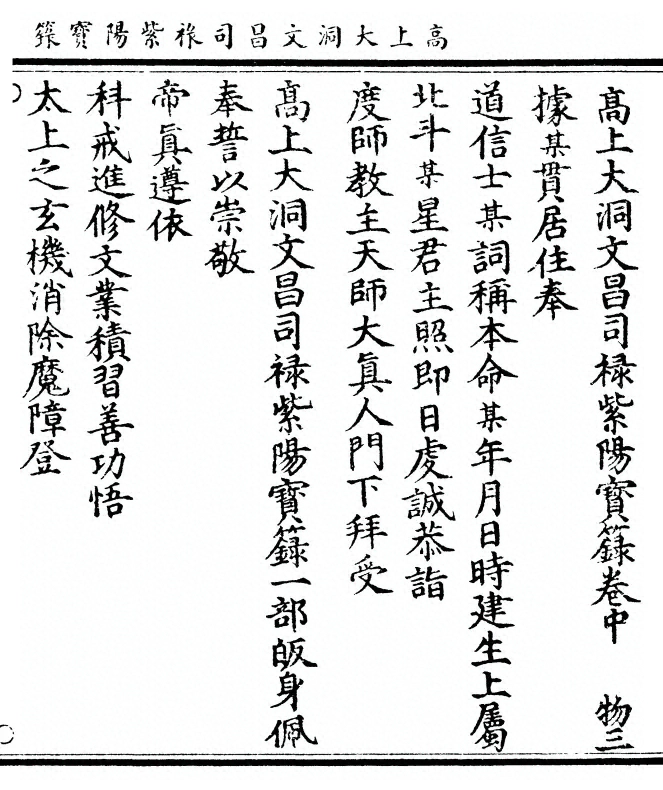 高上大洞文昌司祿紫陽寶籙
髙上大洞文昌司禄紫陽寳籙卷中 物三
據某貫居住奉
道信士某詞稱本命某年月日時建生上屬
北斗某星君主照即日虔誠恭詣
度師教主天師大眞人門下拜受
髙上大洞文昌司禄紫陽寳籙一部皈身佩
奉誓以崇敬
帝眞遵依
科戒進修文業積習善功悟
太上之玄機消除魔障登